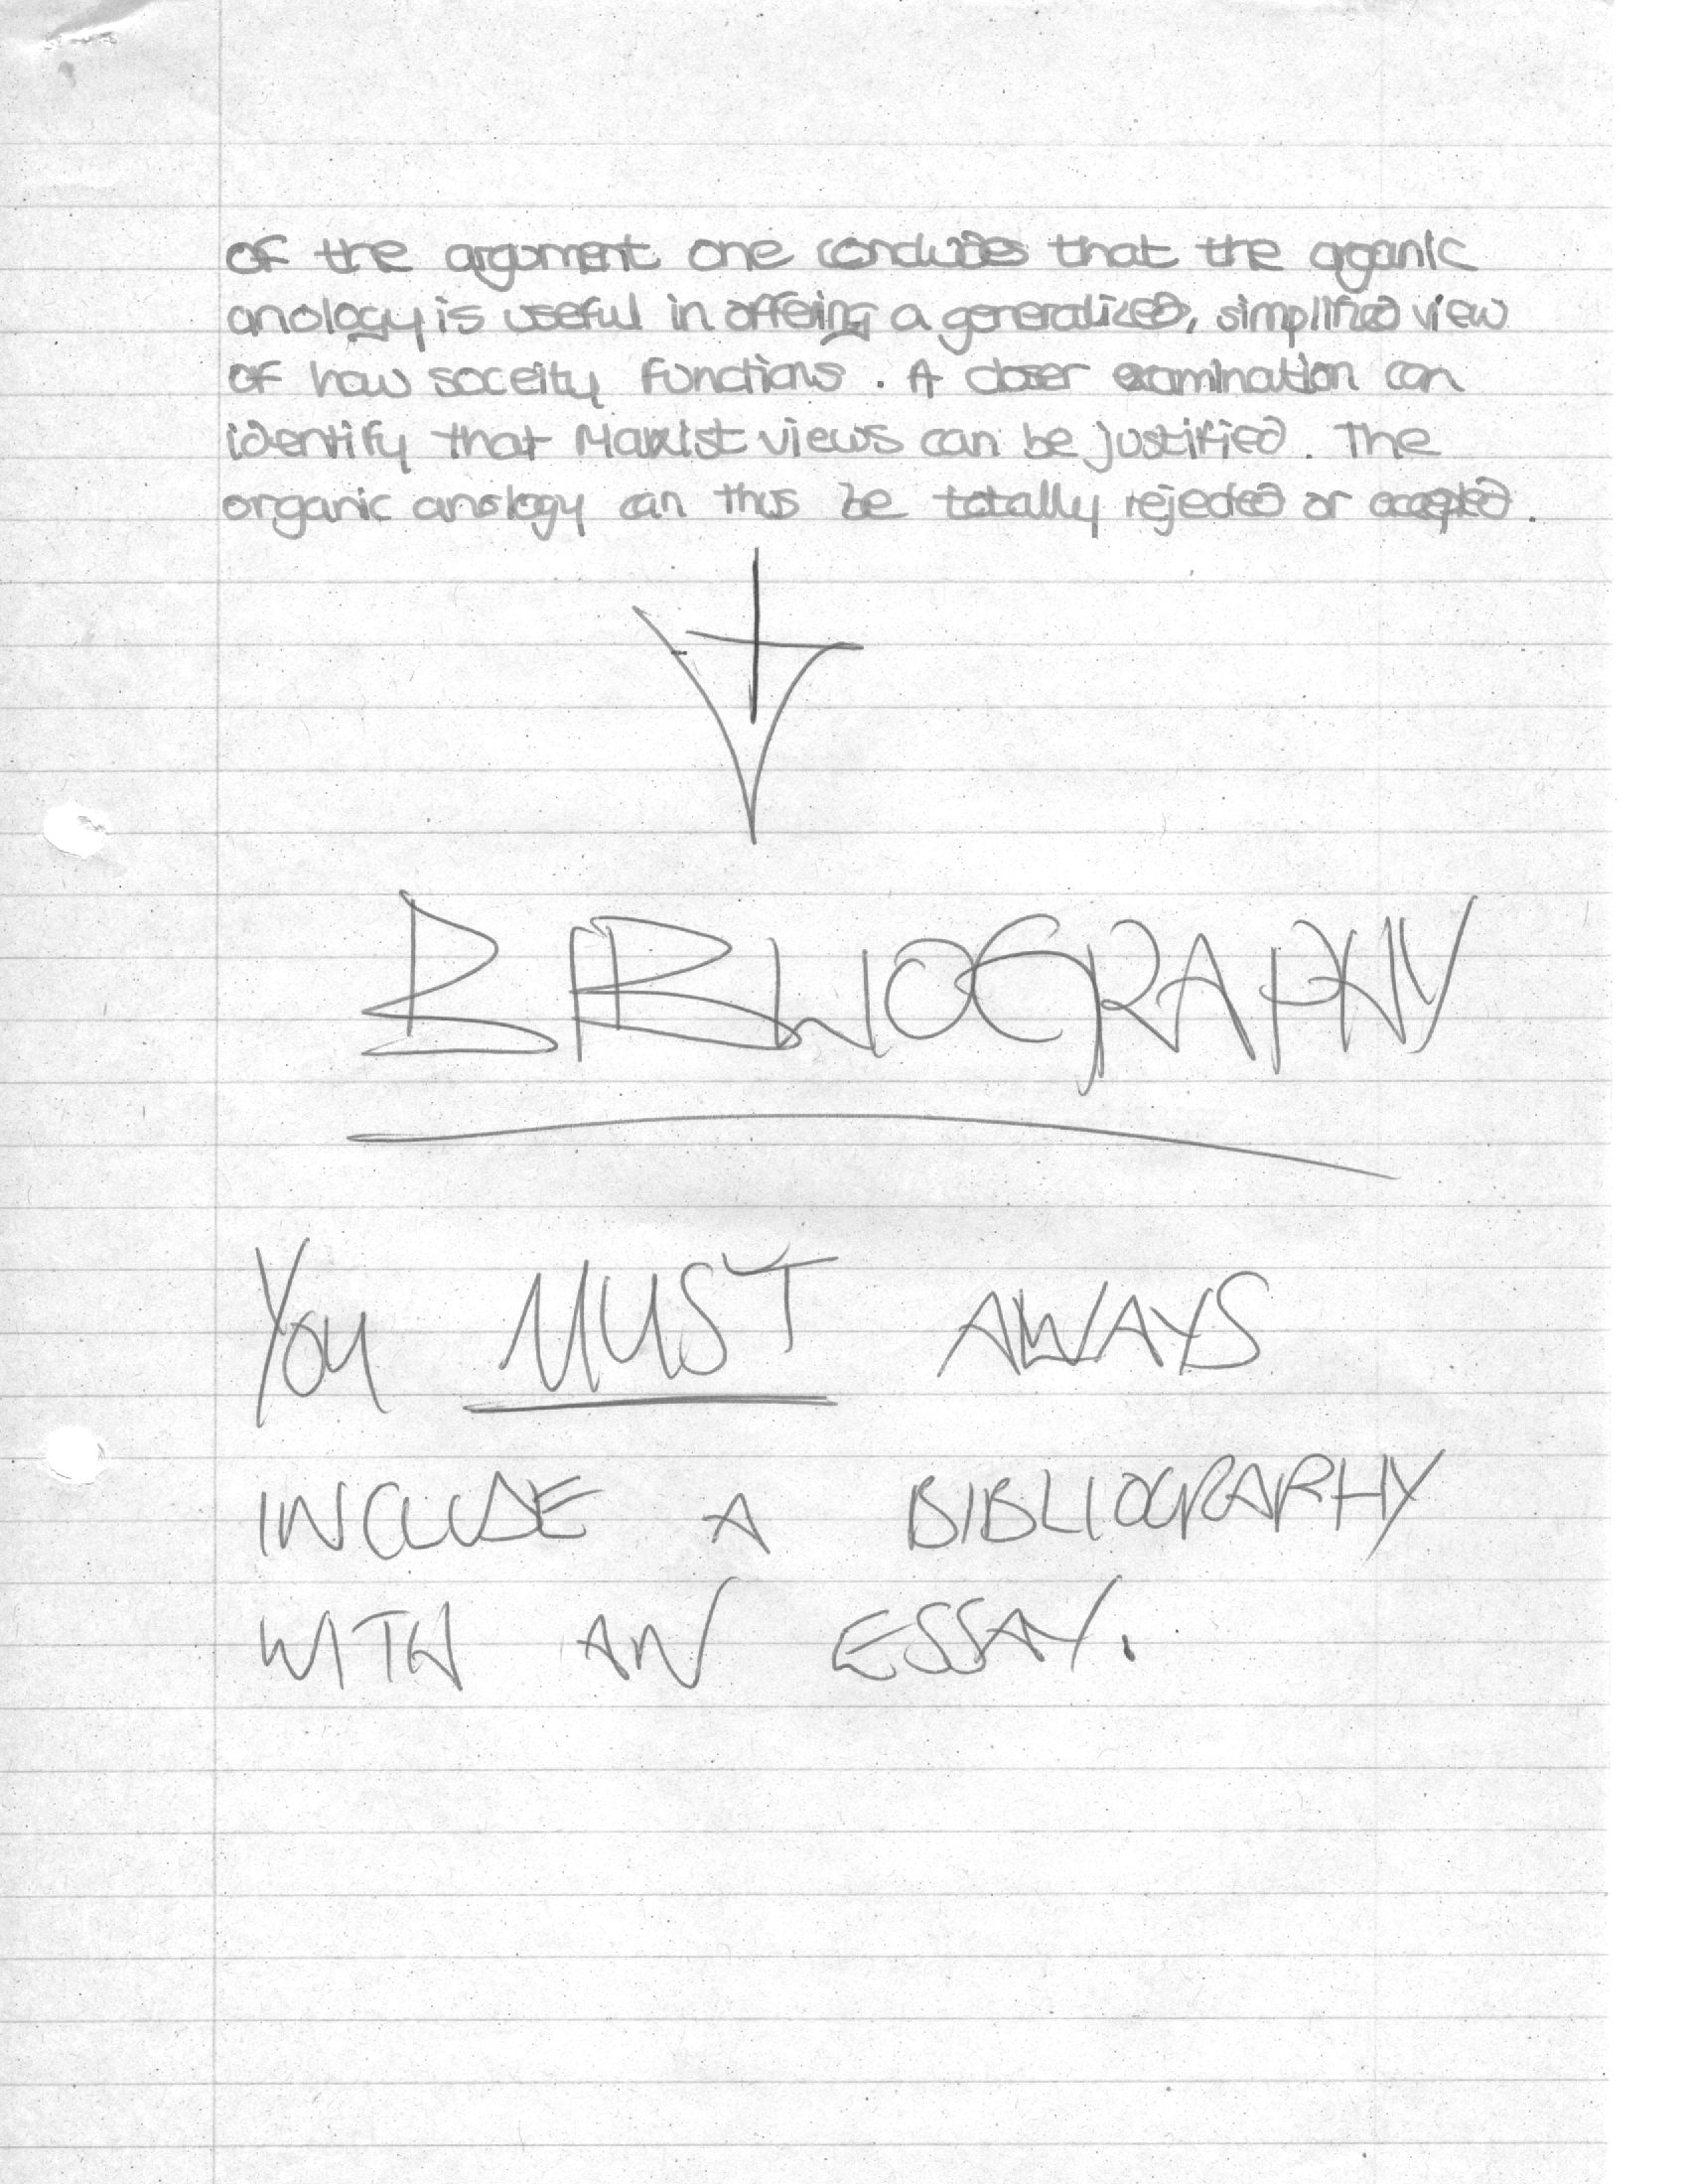 of the argument one concludes that the organic
anology is useful in offering a generalized, simplified view
of how soceity functions. A closer examination can
identify that Marxist views can be justified. The
organic anology can thus be totally rejected or accepted.
BIBLIOGRAPHY
YOU MUST AWAYS
INCLUDE A BIBLIOGRAPHY
WITH AN ESSAY.